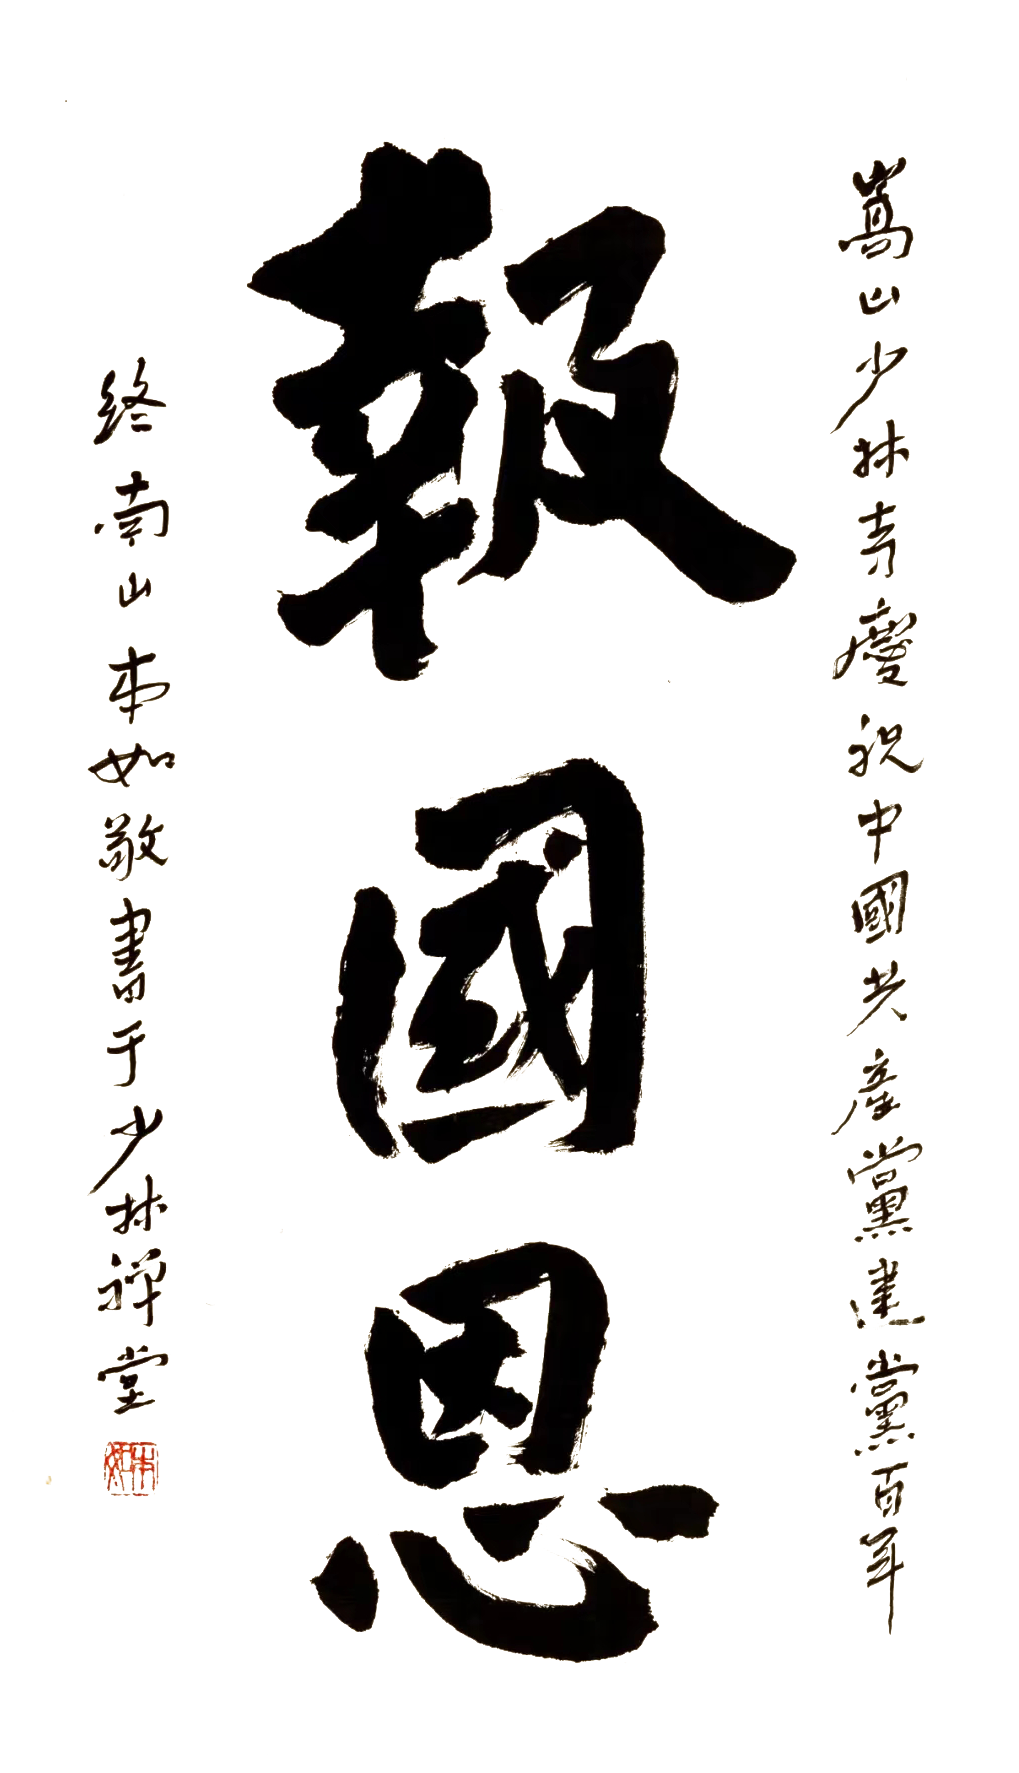 嵩山少林寺慶祝中國共產黨建黨百年
報國恩
終南山本如敬書于少林禪堂
本如